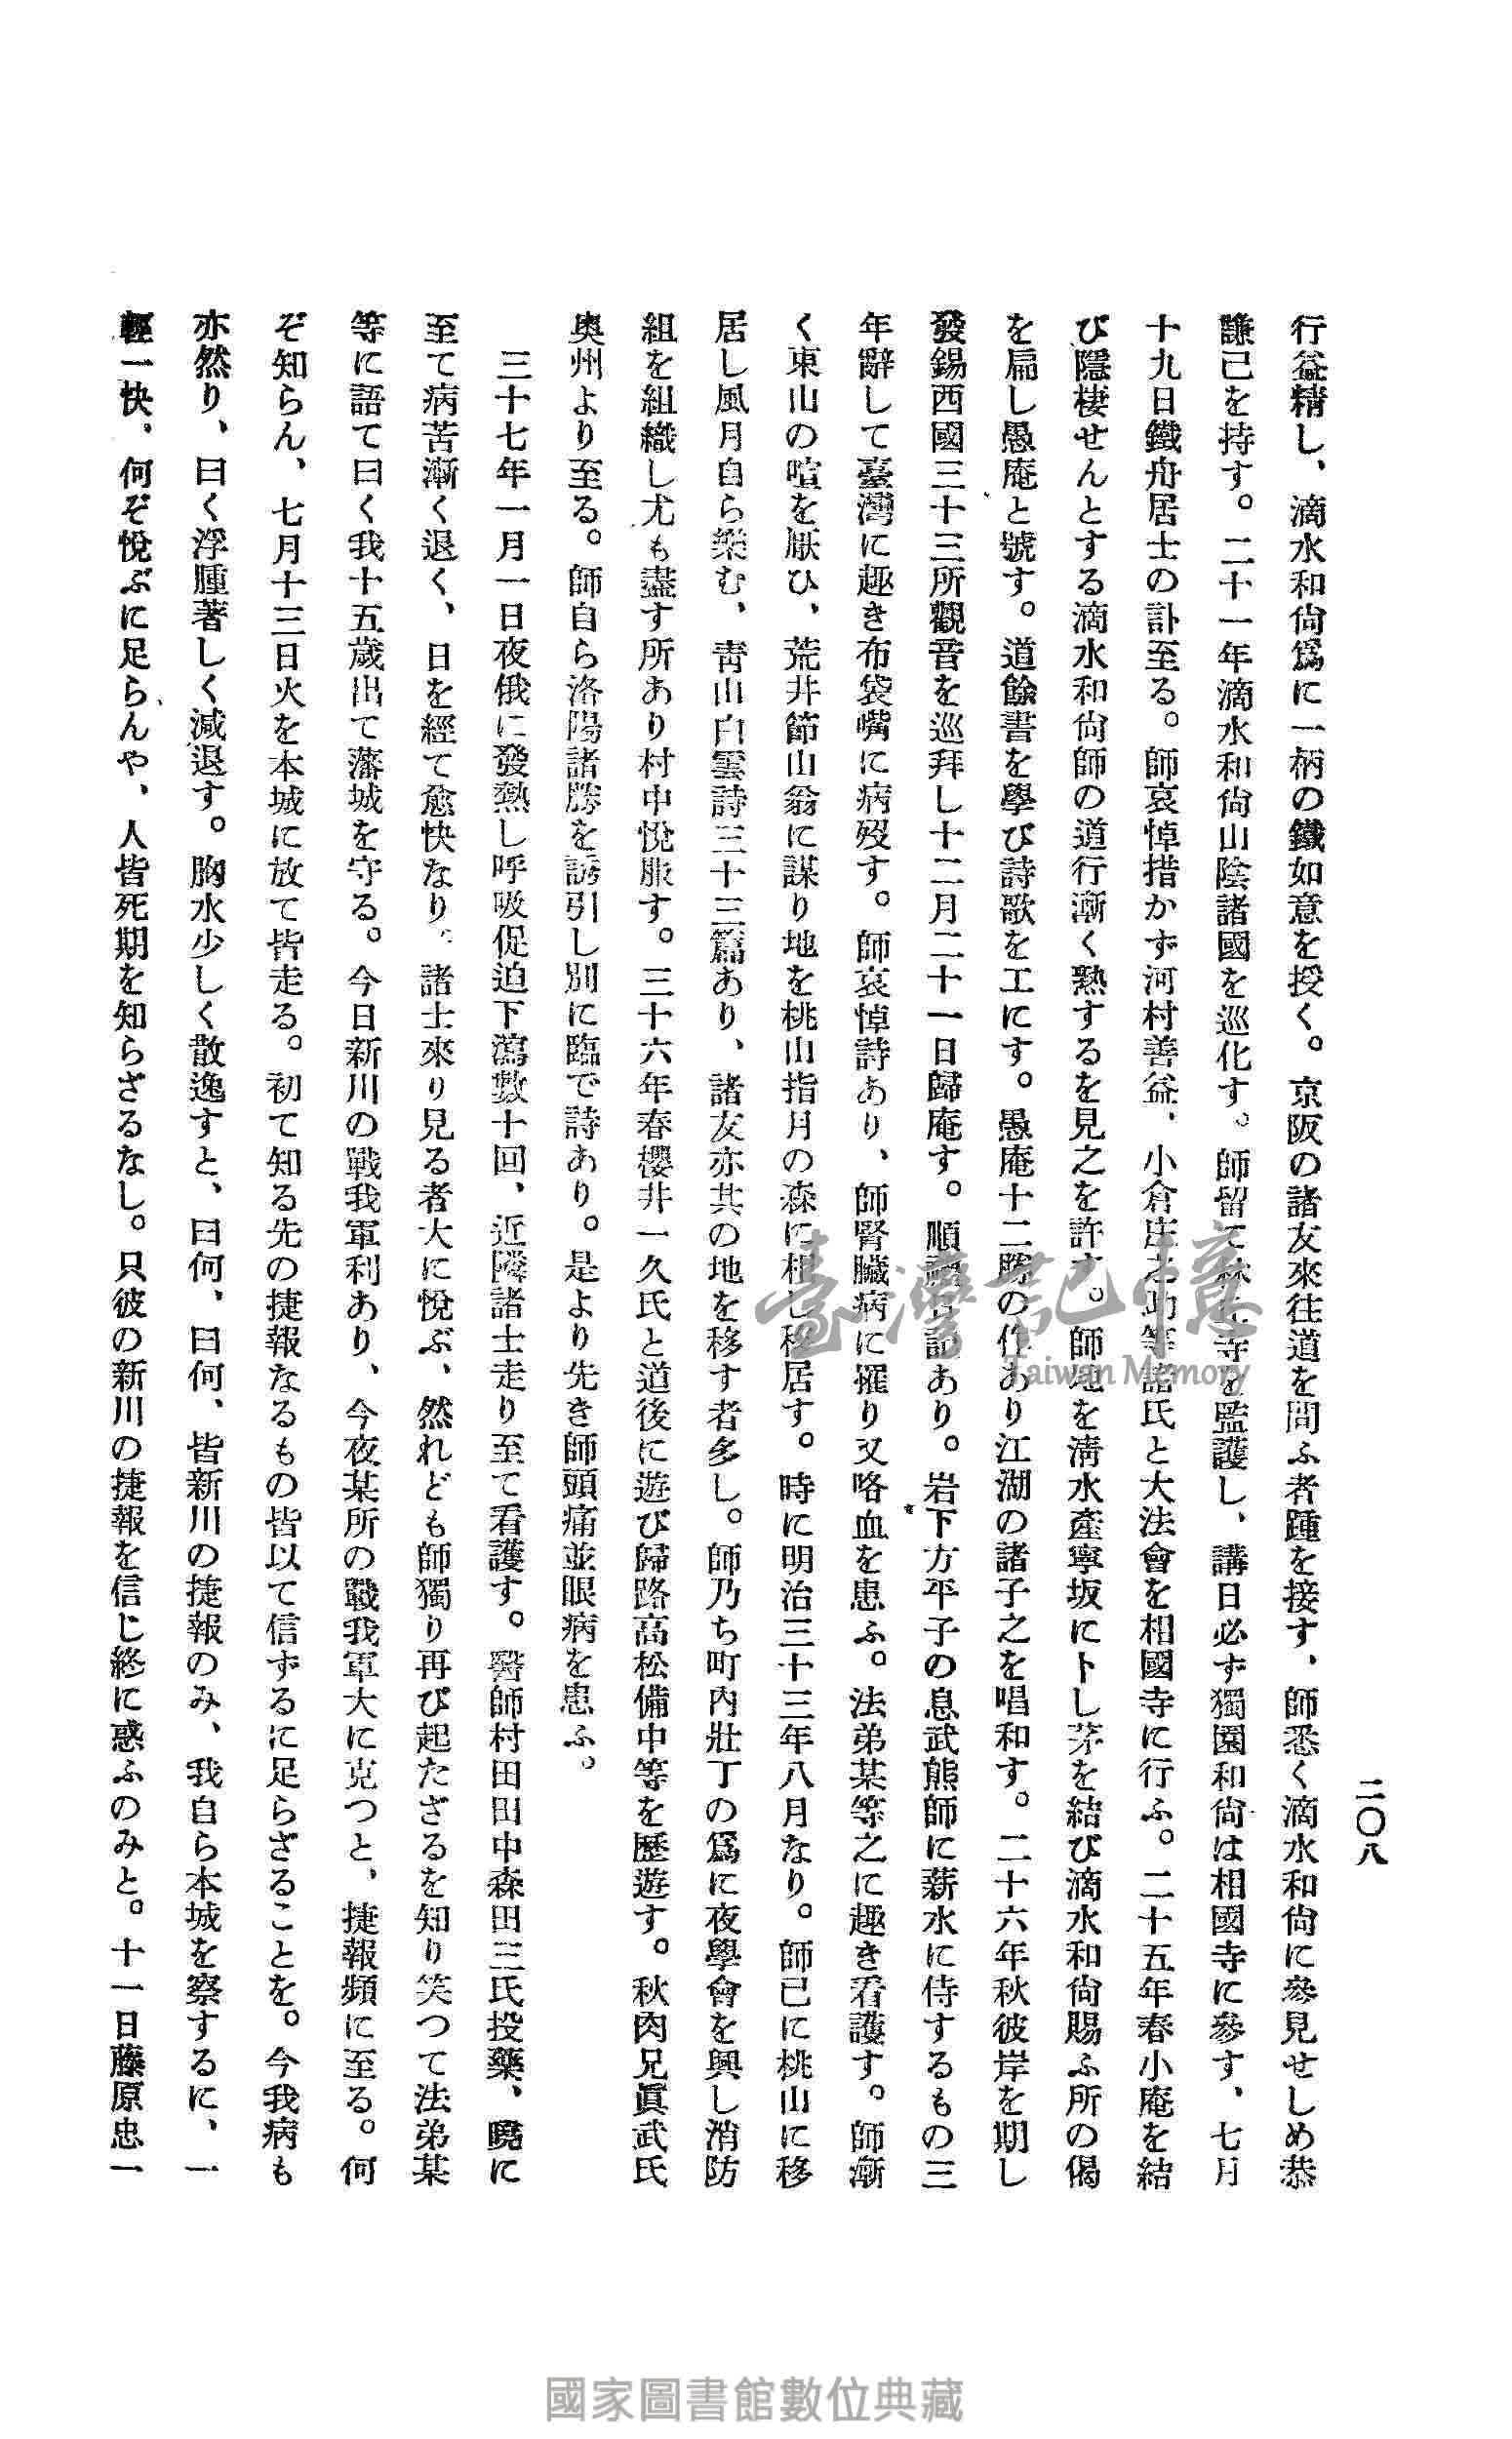 二〇八
行益精し、滴水和尙爲に一柄の鐵如意を授く。京阪の諸友來往道を問ふ者踵を接す、師悉く滴水和尙に參見せしめ恭
謙己を持す。二十一年滴水和尙山陰諸國を巡化す。師留て林丘寺を監護し、講日必ず獨園和尙は相國寺に參す、七月
十九日鐵舟居士の訃至る。師哀悼措かず河村善益、小倉庄之助等諸氏と大法會を相國寺に行ふ。二十五年春小庵を結
び隱棲せんとする滴水和尙師の道行漸く熟するを見之を許す。師地を淸水產寧坂に卜し茅を結び滴水和尙賜ふ所の偈
を扁し愚庵と號す。道餘書を學び詩歌を工にす。愚庵十二勝の作あり江湖の諸子之を唱和す。二十六年秋彼岸を期し
發錫西國三十三所觀音を巡拜し十二月二十一日歸庵す。順禮日記あり。岩下方平子の息武熊師に薪水に侍するもの三
年辭して臺灣に趣き布袋嘴に病歿す。師哀悼詩あり、師腎臟病に罹り又咯血を患ふ。法弟某等之に趣き看護す。師漸
く東山の喧を厭ひ、荒井節山翁に謀り地を桃山指月の森に相し移居す。時に明治三十三年八月なり。師已に桃山に移
居し風月自ら樂む、靑山白雲詩三十三篇あり、諸友亦其の地を移す者多し。師乃ち町內壯丁の爲に夜學會を興し消防
組を組織し尤も盡す所あり村中悅服す。三十六年春櫻井一久氏と道後に遊び歸路高松備中等を歷遊す。秋肉兄眞武氏
奧州より至る。師自ら洛陽諸勝を誘引し別に臨で詩あり。是より先き師頭痛並眼病を患ふ。
三十七年一月一日夜俄に發熱し呼吸促迫下瀉數十回、近隣諸士走り至て看護す。醫師村田田中森田三氏投藥、曉に
至て病苦漸く退く、日を經て愈快なり。諸士來り見る者大に悅ぶ、然れども師獨り再び起たざるを知り笑つて法弟某
等に語て曰く我十五歲出て藩城を守る。今日新川の戰我軍利あり、今夜某所の戰我軍大に克つと、捷報頻に至る。何
ぞ知らん、七月十三日火を本城に放て皆走る。初て知る先の捷報なるもの皆以て信ずるに足らざることを。今我病も
亦然り、曰く浮腫著しく減退す。胸水少しく散逸すと、曰何、曰何、皆新川の捷報のみ、我自ら本城を察するに、一
輕一快、何ぞ悅ぶに足らんや、人皆死期を知らざるなし。只彼の新川の捷報を信じ終に惑ふのみと。十一日藤原忠一
臺灣記憶
Taiwan Memory
國家圖書館數位典藏